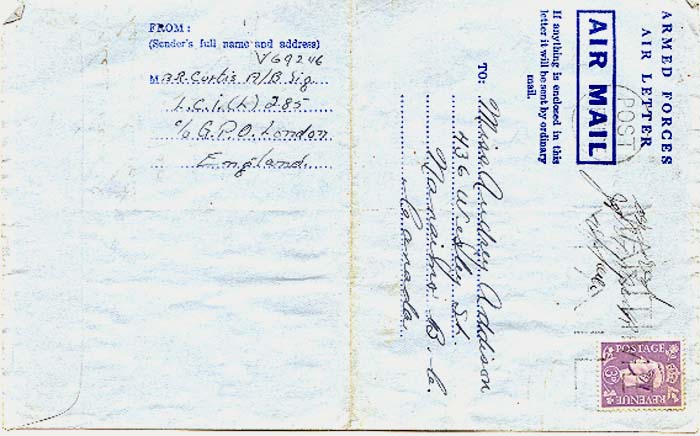 FROM:
(Sender's full name and address)
V69246
M B.R. Curtis A/B Sig.
L.C.I.(L) 285
c/o G.P.O. London
England.
ARMED FORCES
AIR LETTER
AIR MAIL
If anything is enclosed in this
letter it will be sent by ordinary
mail.
TO: Miss Audrey Addison
436 Wesley St.
Nanaimo B.C.
Canada.
POST
POSTAGE
3D
REVENUE